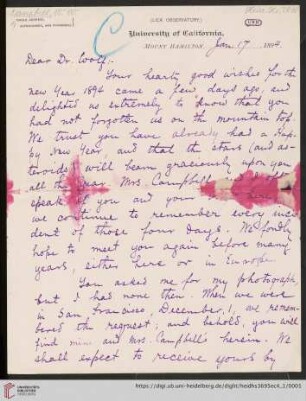 (LICK OBSERVATORY)
University of California,
MOUNT HAMILTON, Jan. 17, 1894
Dear Dr. Wolf:
Your hearty good wishes for the
New Year 1894 came a few days ago, and
delighted us extremely to know that you
had not forgotten us on the mountain top.
We trust you have already had a Hap-
py New Year, and that the stars (and as-
teroids) will beam graciously upon you
all the year. Mrs. Campbell
speak of you and your
we continue to remember every inci
dent of those four days. We fondly
hope to meet you again before many
years, either here or in Europe.
You asked me for my photograph,
but I had none then. When we were
in San Francisco, December, 1, we remem-
bered the request, and behold, you will
find mine and Mrs. Campbell's herein. We
shall expect to receive yours by
https://digi.ub.uni-heidelberg.de/diglit/heidhs3695eck_1/0001